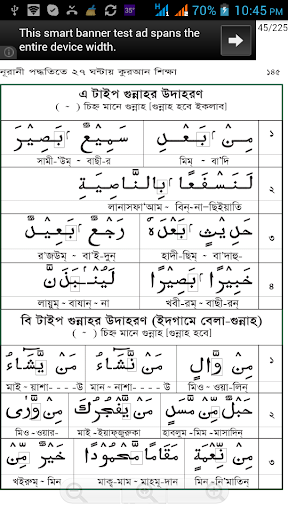 35° 10:45 PM
45/225
This smart banner test ad spans the
entire device width.
নূরানী পদ্ধতিতে ২৭ ঘন্টায় কুরআন শিক্ষা ১৪৫
এ টাইপ গুন্নাহর উদাহরণ
( - ) চিহ্ন মানে গুন্নাহ [গুন্নাহ হবে ইকলাব]
مِنْۢ بَعْدِ سَمِيْعٌۢ بَصِيْرٌ ১
মিম্ - বা'দি সামী-'উম্ - বাছী-র
لَنَسْفَعًۢا بِالنَّاصِيَةِ ২
লানাসফা'আম - বিন্-না-ছিইয়াতি
حَدِيْثٍۢ بَعْدَهٗ رَجْعٌۢ بَعِيْدٌ ৩
হাদী-ছিম্ - বা'দাহু- র'জউম্ - বা'ই-দুন্
خَبِيْرًۢا بَصِيْرًا لَيُنْۢبَذَنَّ ৪
খবী-রম্ - বাছী-রন্ লায়ুম্ - বাযান্ - না
বি টাইপ গুন্নাহর উদাহরণ (ইদগামে বেলা-গুন্নাহ)
( - ) চিহ্ন মানে গুন্নাহ [গুন্নাহ হবে]
مِنْ وَّالٍ مَنْ نَّشَآءُ مَنْ يَّشَآءُ ১
মিও - ওয়া-লিন্ মান - নাশা----উ মাই - য়াশা----উ
حَبْلٌ مِّنْ مَّسَدٍ مَنْ يَّفْجُرُكَ مِنْ وَّرَآىِٕ ২
হাবলুম - মিম - মাসাদিন্ মাই - ইয়াফ্জুরুকা মিও -ওয়ার-
مِنْ نِّعْمَةٍ مَقَامًا مَّحْمُوْدًا خَيْرٌ مِّنْ ৩
মিন্ -নি'মাতিন্ মাক্ব-মাম - মাহমূ-দান্ খইরুম্ - মিন্